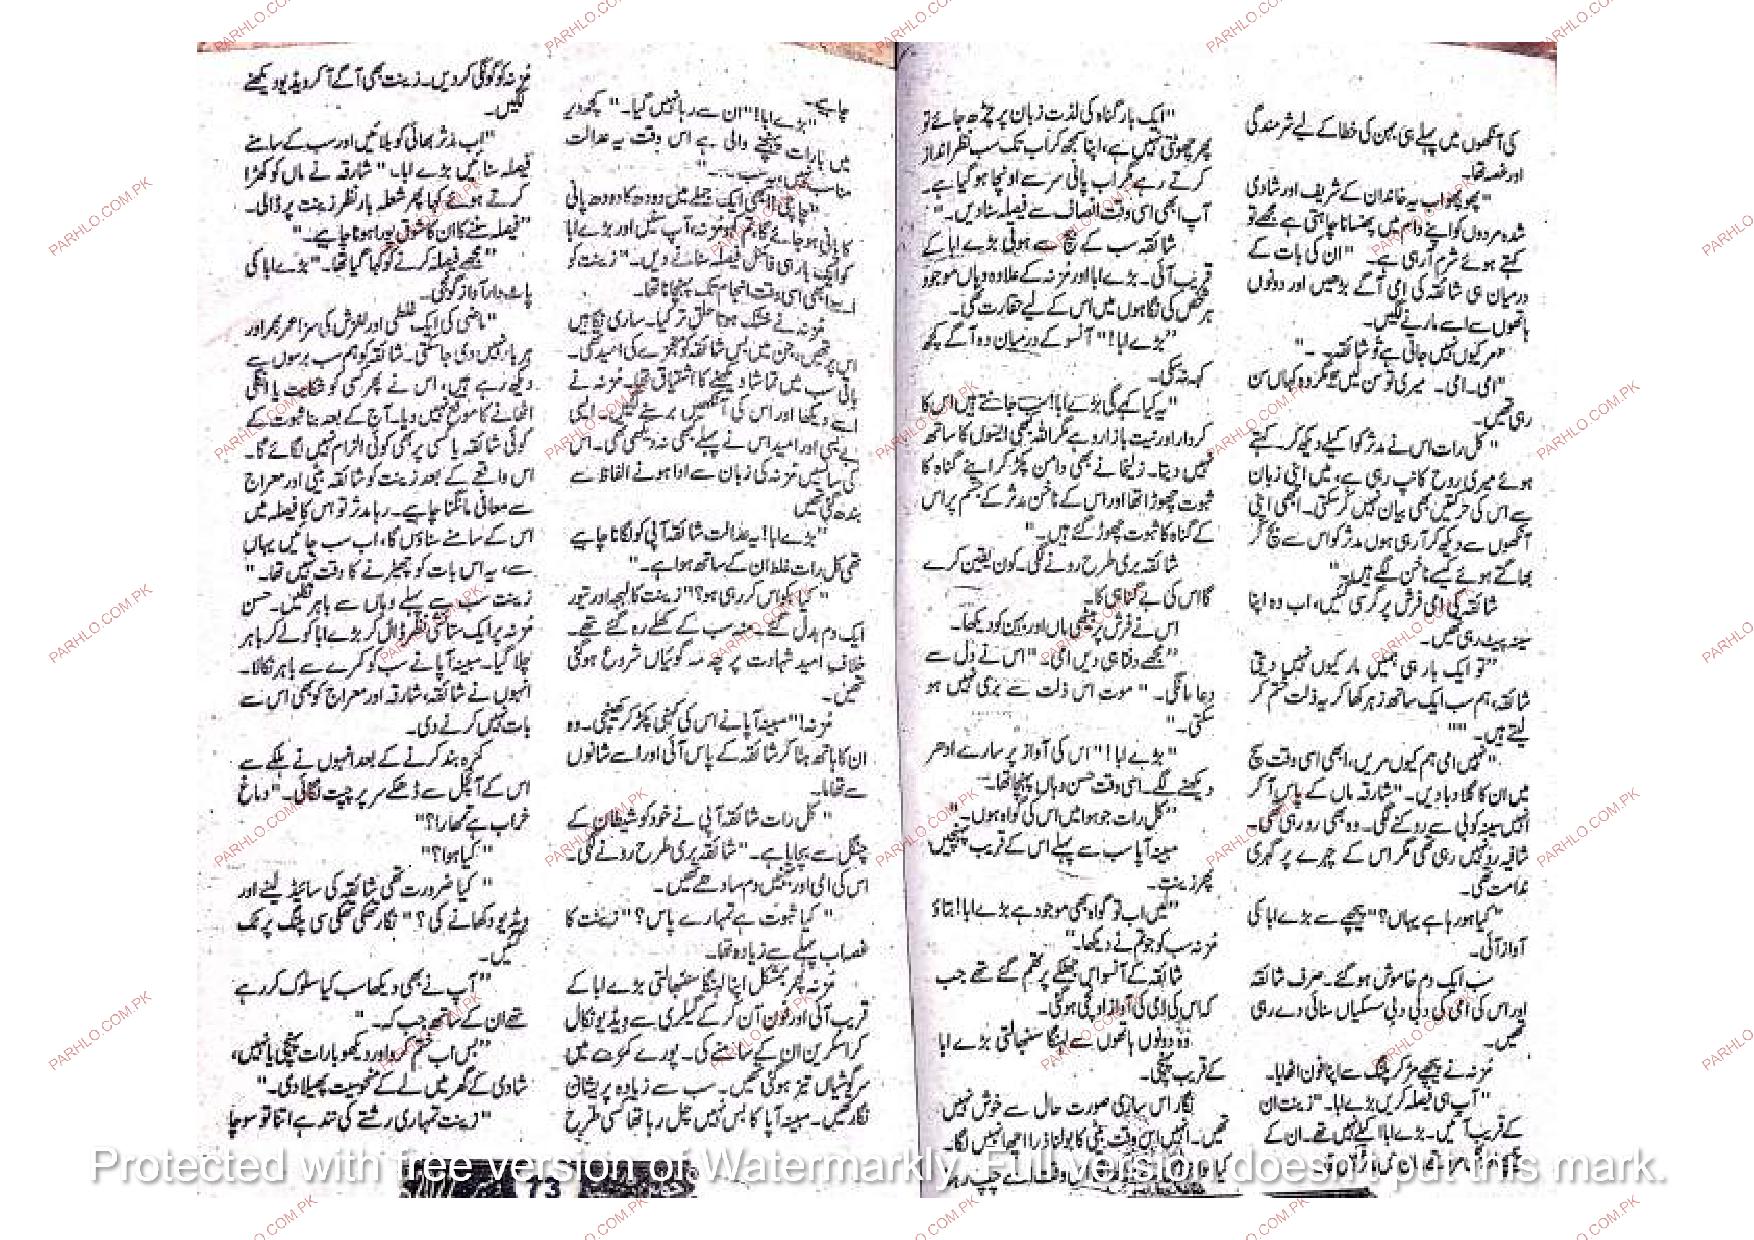 کی آنکھوں میں پہلے ہی بہن کی خطا کے لیے شرمندگی
اور غصہ تھا۔
"پھوپھو اب یہ خاندان کے شریف اور شادی
شدہ مردوں کو اپنے دام میں پھنسانا چاہتی ہے مجھے تو
کہتے ہوئے شرم آ رہی ہے۔" ان کی بات کے
درمیان ہی شائقہ کی امی آگے بڑھیں اور دونوں
ہاتھوں سے اسے مارنے لگیں۔
"مر کیوں نہیں جاتی ہے تو شائقہ۔"
"امی۔ امی۔ میری تو سن لیں" مگر وہ کہاں سن
رہی تھیں۔
"کل رات اس نے مدثر کو اکیلے دیکھ کر۔ کہتے
ہوئے میری روح کانپ رہی ہے، میں اپنی زبان
سے اس کی حرکتیں بھی بیان نہیں کر سکتی۔ ابھی اپنی
آنکھوں سے دیکھ کر آ رہی ہوں مدثر کو اس سے بچ کر
بھاگتے ہوئے کیسے ناخن لگے ہیں۔"
شائقہ کی امی فرش پر گر سی گئیں، اب وہ اپنا
سینہ پیٹ رہی تھیں۔
"تو ایک بار ہی ہمیں مار کیوں نہیں دیتی
شائقہ، ہم سب ایک ساتھ زہر کھا کر یہ ذلت ختم کر
لیتے ہیں۔"
"نہیں امی ہم کیوں مریں، ابھی اسی وقت بیچ
میں ان کا گلا دبا دیں۔" شارقہ ماں کے پاس آ کر
انہیں سینہ کوبی سے روکنے لگی۔ وہ بھی رو رہی تھی۔
شافیہ رو نہیں رہی تھی مگر اس کے چہرے پر گہری
ندامت تھی۔
"کیا ہو رہا ہے یہاں؟" پیچھے سے بڑے ابا کی
آواز آئی۔
سب ایک دم خاموش ہو گئے۔ صرف شائقہ
اور اس کی امی کی دبی دبی سسکیاں سنائی دے رہی
تھیں۔
مزنہ نے پیچھے مڑ کر پلنگ سے اپنا فون اٹھایا۔
"آپ ہی فیصلہ کریں بڑے ابا۔" زینت ان
کے قریب آئیں۔ بڑے ابا اکیلے نہیں تھے۔ ان کے
"ایک بار گناہ کی لذت زبان پر چڑھ جائے تو
پھر چھوٹتی نہیں ہے، اپنا سمجھ کر اب تک سب نظر انداز
کرتے رہے مگر اب پانی سر سے اونچا ہو گیا ہے۔
آپ ابھی اسی وقت انصاف سے فیصلہ سنا دیں۔"
شائقہ سب کے بیچ سے ہوتی بڑے ابا کے
قریب آئی۔ بڑے ابا اور مزنہ کے علاوہ وہاں موجود
ہر شخص کی نگاہوں میں اس کے لیے حقارت تھی۔
"بڑے ابا!" آنسو کے درمیان وہ آگے کچھ
کہہ نہ سکی۔
"یہ کیا کہے گی بڑے ابا! سب جانتے ہیں اس کا
کردار اور نیت بازارو ہے مگر اللہ بھی ایسوں کا ساتھ
نہیں دیتا۔ زلیخا نے بھی دامن پکڑ کر اپنے گناہ کا
ثبوت چھوڑا تھا اور اس کے ناخن مدثر کے جسم پر اس
کے گناہ کا ثبوت چھوڑ گئے ہیں۔"
شائقہ بری طرح رونے لگی۔ کون یقین کرے
گا اس کی بے گناہی کا۔
اس نے فرش پر بیٹھی ماں اور بہن کو دیکھا۔
"مجھے دفنا ہی دیں امی۔" اس نے دل سے
دعا مانگی۔ "موت اس ذلت سے بری نہیں ہو
سکتی۔"
"بڑے ابا!" اس کی آواز پر سارے ادھر
دیکھنے لگے۔ اسی وقت حسن وہاں پہنچا تھا۔
"کل رات جو ہوا میں اس کی گواہ ہوں۔"
مبینہ آپا سب سے پہلے اس کے قریب پہنچیں
پھر زینت۔
"لیں اب تو گواہ بھی موجود ہے بڑے ابا! بتاؤ
مزنہ سب کو جو تم نے دیکھا۔"
شائقہ کے آنسو اس جھٹکے پر تھم گئے تھے جب
کہ اس کی امی کی آواز اونچی ہو گئی۔
وہ دونوں ہاتھوں سے لہنگا سنبھالتی بڑے ابا
کے قریب پہنچی۔
نگار اس ساری صورت حال سے خوش نہیں
تھیں۔ انہیں اس وقت بیٹی کا بولنا ذرا اچھا نہیں لگا۔
چاہیے۔
"بڑے ابا!" ان سے رہا نہیں گیا۔ "کچھ دیر
میں بارات پہنچنے والی ہے اس وقت یہ عدالت
مناسب نہیں، یہ سب ۔۔۔"
"چاچی! ابھی ایک جملے میں دودھ کا دودھ پانی
کا پانی ہو جائے گا، تم کہو مزنہ، آپ سنیں اور بڑے ابا
کو ایک بار ہی فائنل فیصلہ سنانے دیں۔" زینت کو
اسے ابھی اسی وقت انجام تک پہنچانا تھا۔
مزنہ نے خشک ہوتا حلق تر کیا۔ ساری نگاہیں
اس پر تھیں، جن میں بس شائقہ کو معجزے کی امید تھی۔
باقی سب میں تماشا دیکھنے کا اشتیاق تھا۔ مزنہ نے
اسے دیکھا اور اس کی آنکھیں برسنے لگیں۔ ایسی
بے بسی اور امید اس نے پہلے کبھی نہ دیکھی تھی۔ اس
کی سانسیں مزنہ کی زبان سے ادا ہونے الفاظ سے
بندھ گئی تھیں
"بڑے ابا! یہ عدالت شائقہ آپی کو لگانا چاہیے
تھی کل رات غلط ان کے ساتھ ہوا ہے۔"
"کیا بکواس کر رہی ہو؟" زینت کا لہجہ اور تیور
ایک دم بدل گئے۔ منہ سب کے کھلے رہ گئے تھے۔
خلاف امید شہادت پر چہ مہ گوئیاں شروع ہو گئی
تھیں۔
مزنہ!" مبینہ آپا نے اس کی کہنی پکڑ کر کھینچی۔ وہ
ان کا ہاتھ ہٹا کر شائقہ کے پاس آئی اور اسے شانوں
سے تھاما۔
"کل رات شائقہ آپی نے خود کو شیطان کے
چنگل سے بچایا ہے۔" شائقہ بری طرح رونے لگی۔
اس کی امی اور بہنیں دم سادھے تھیں۔
"کیا ثبوت ہے تمہارے پاس؟" زینت کا
غصہ اب پہلے سے زیادہ تھا۔
مزنہ پھر بمشکل اپنا لہنگا سنبھالتی بڑے ابا کے
قریب آئی اور فون آن کر کے گیلری سے ویڈیو نکال
کر اسکرین ان کے سامنے کی۔ پورے کمرے میں
سرگوشیاں تیز ہو گئی تھیں۔ سب سے زیادہ پریشان
نگار تھیں۔ مبینہ آپا کا بس نہیں چل رہا تھا کسی طرح
مزنہ کو گونگی کر دیں۔ زینت بھی آگے آ کر ویڈیو دیکھنے
لگیں۔
"اب مدثر بھائی کو بلائیں اور سب کے سامنے
فیصلہ سنائیں بڑے ابا۔" شارقہ نے ماں کو کھڑا
کرتے ہوئے کہا پھر شعلہ بار نظر زینت پر ڈالی۔
"فیصلہ سننے کا ان کا شوق پورا ہونا چاہیے۔"
"مجھے فیصلہ کرنے کو کہا گیا تھا۔" بڑے ابا کی
پاٹ دار آواز گونجی۔
"ماضی کی ایک غلطی اور لغزش کی سزا عمر بھر اور
ہر بار نہیں دی جا سکتی۔ شائقہ کو ہم سب برسوں سے
دیکھ رہے ہیں، اس نے پھر کسی کو شکایت یا انگلی
اٹھانے کا موقع نہیں دیا۔ آج کے بعد بنا ثبوت کے
کوئی شائقہ یا کسی پر بھی کوئی الزام نہیں لگائے گا۔
اس واقعے کے بعد زینت کو شائقہ بیٹی اور معراج
سے معافی مانگنا چاہیے۔ رہا مدثر تو اس کا فیصلہ میں
اس کے سامنے سناؤں گا، اب سب جائیں یہاں
سے، یہ اس بات کو چھیڑنے کا وقت نہیں تھا۔"
زینت سب سے پہلے وہاں سے باہر نکلیں۔ حسن
مزنہ پر ایک ستائشی نظر ڈال کر بڑے ابا کو لے کر باہر
چلا گیا۔ مبینہ آپا نے سب کو کمرے سے باہر نکالا۔
انہوں نے شائقہ، شارقہ اور معراج کو بھی اس سے
بات نہیں کرنے دی۔
کمرہ بند کرنے کے بعد انہوں نے ہلکے سے
اس کے آنچل سے ڈھکے سر پر چپت لگائی۔ "دماغ
خراب ہے تمہارا؟"
"کیا ہوا؟"
"کیا ضرورت تھی شائقہ کی سائیڈ لینے اور
ویڈیو دکھانے کی؟" نگار تھکی تھکی سی پلنگ پر ٹک
گئیں۔
"آپ نے بھی دیکھا سب کیا سلوک کر رہے
تھے ان کے ساتھ جب کہ۔"
"بس اب ختم کرو اور دیکھو بارات پہنچی یا نہیں،
شادی کے گھر میں لے کے نحوست پھیلا دی۔"
"زینت تمہاری رشتے کی نند ہے اتنا تو سوچا
73
Protected with free version of Watermarkly. Full version doesn't put this mark.
PARHLO.COM.PK